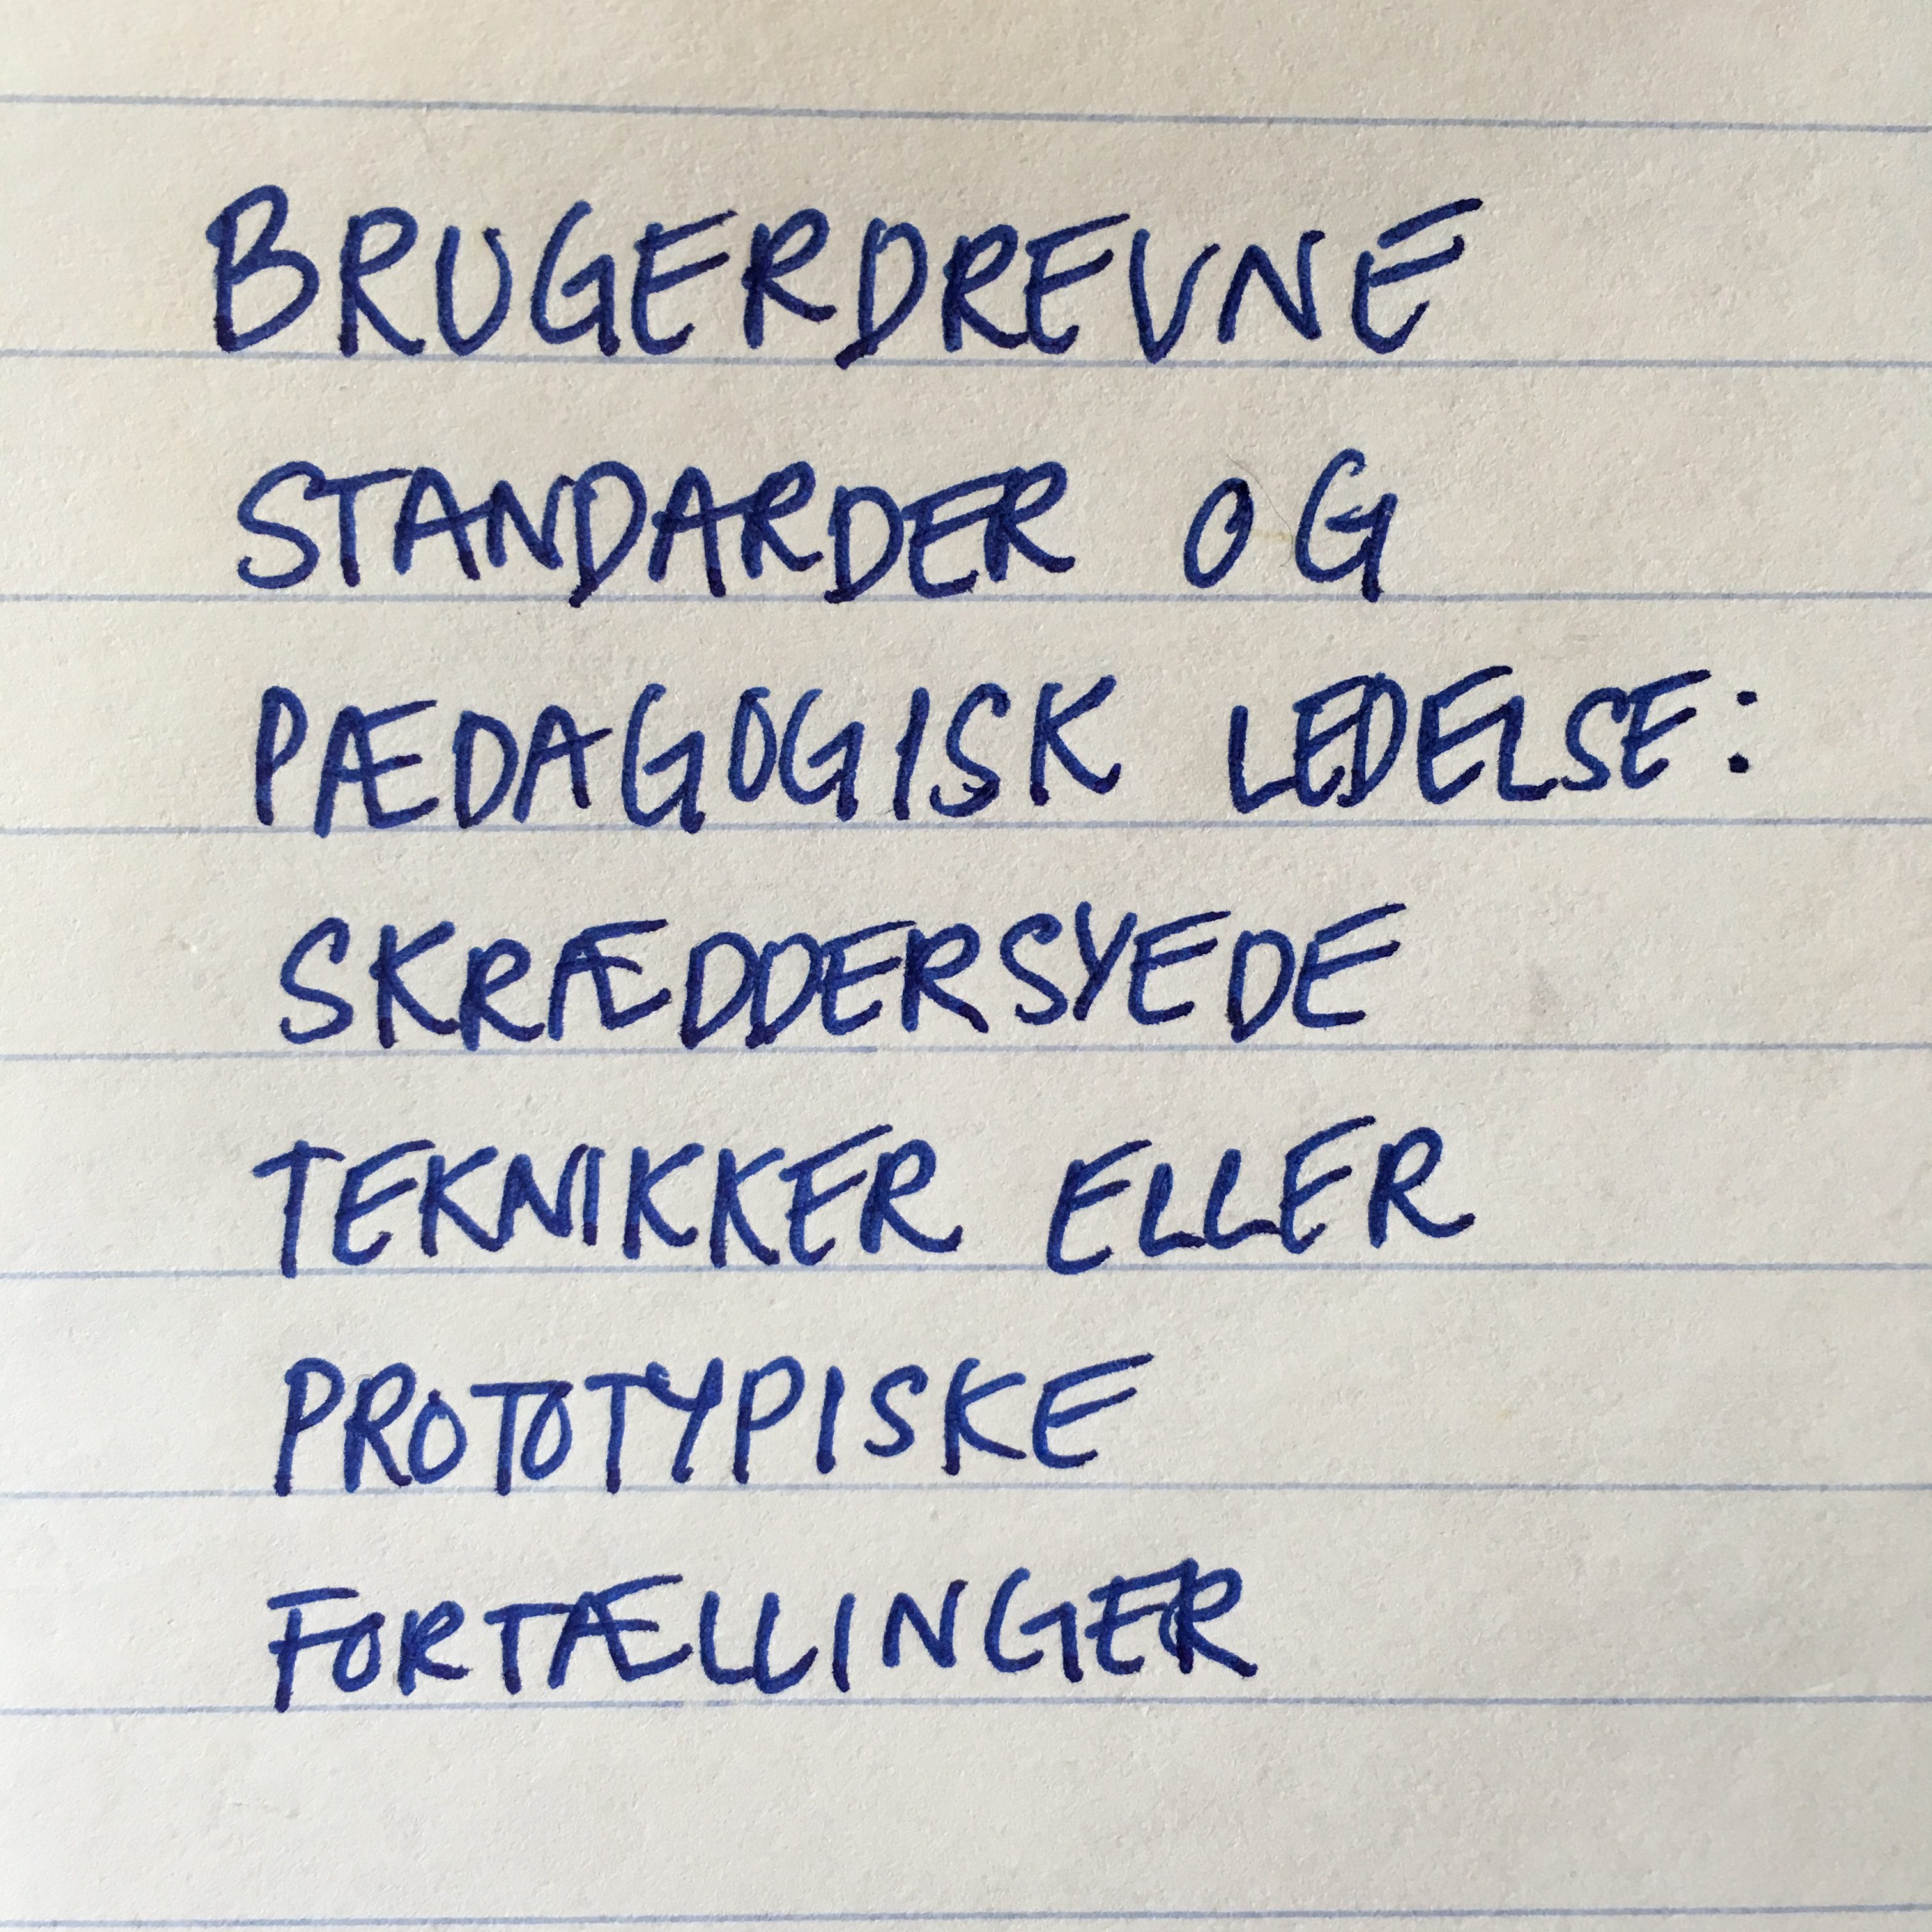 BRUGERDREVNE
STANDARDER OG
PÆDAGOGISK LEDELSE:
SKRÆDDERSYEDE
TEKNIKKER ELLER
PROTOTYPISKE
FORTÆLLINGER